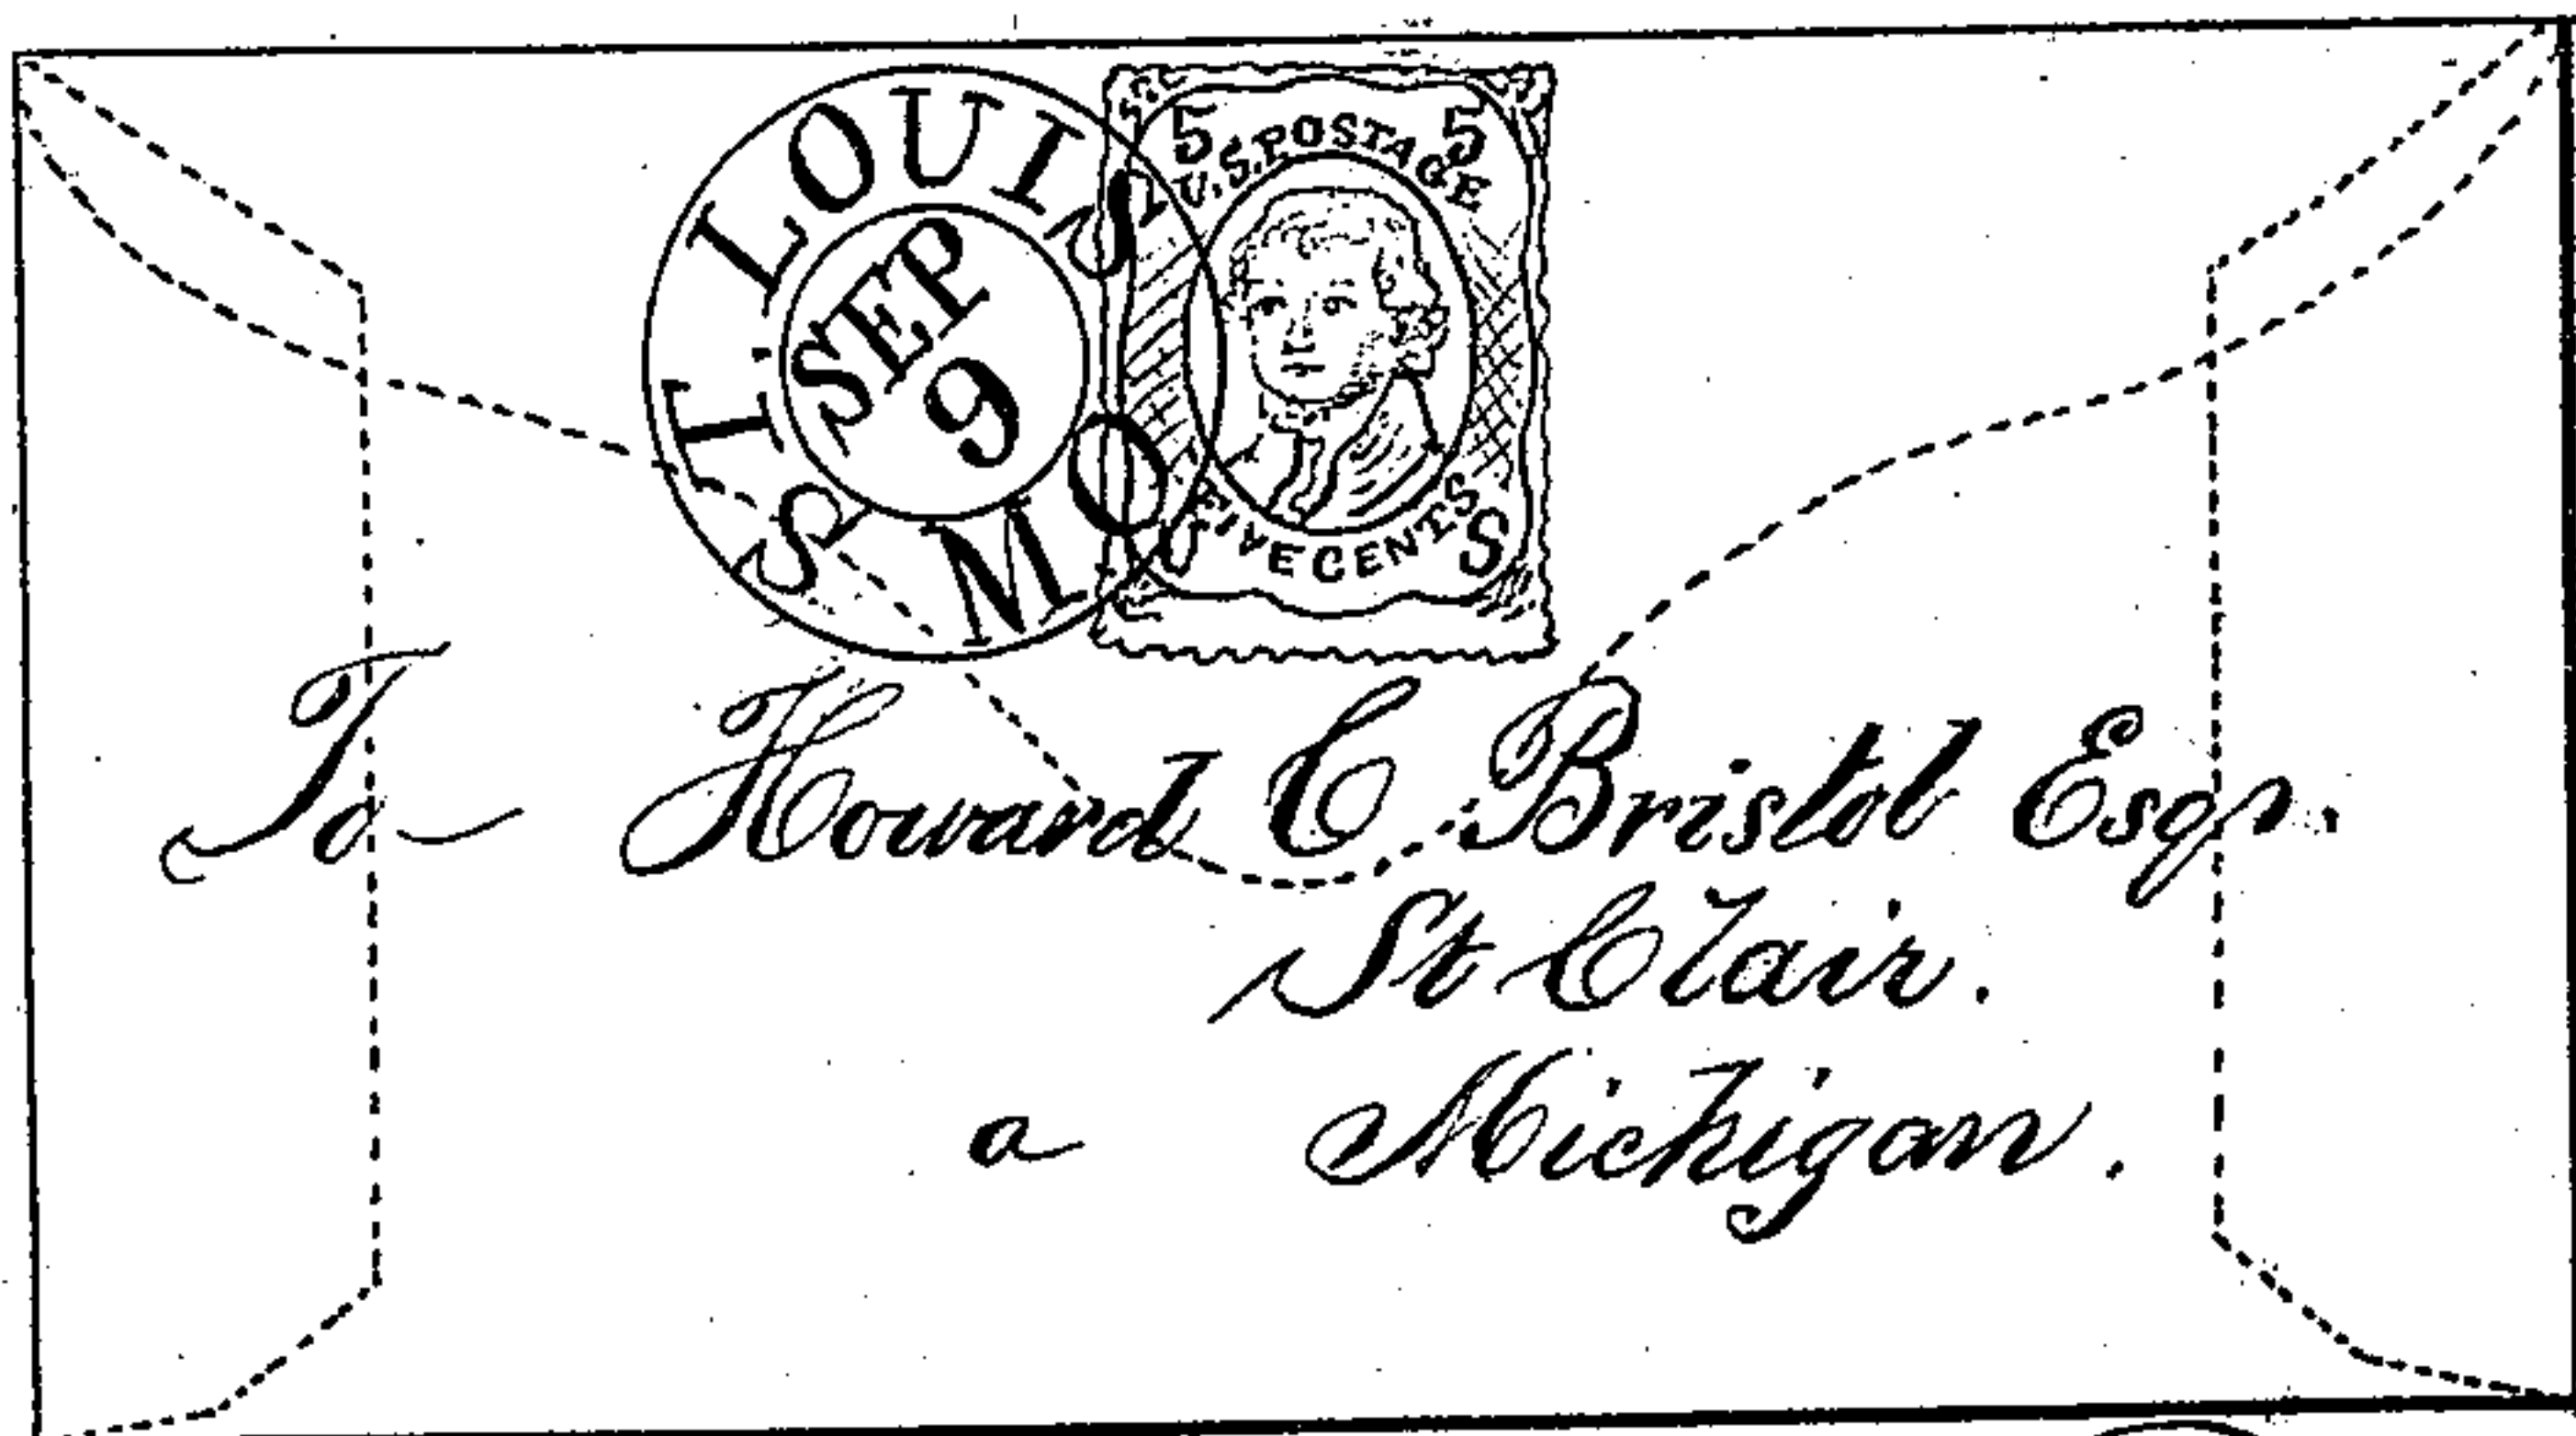 ST. LOUIS MO.
SEP
9
5 5
U.S. POSTAGE
FIVE CENTS
5 S
To Howard C. Bristol Esqr.
St Clair.
a Michigan.